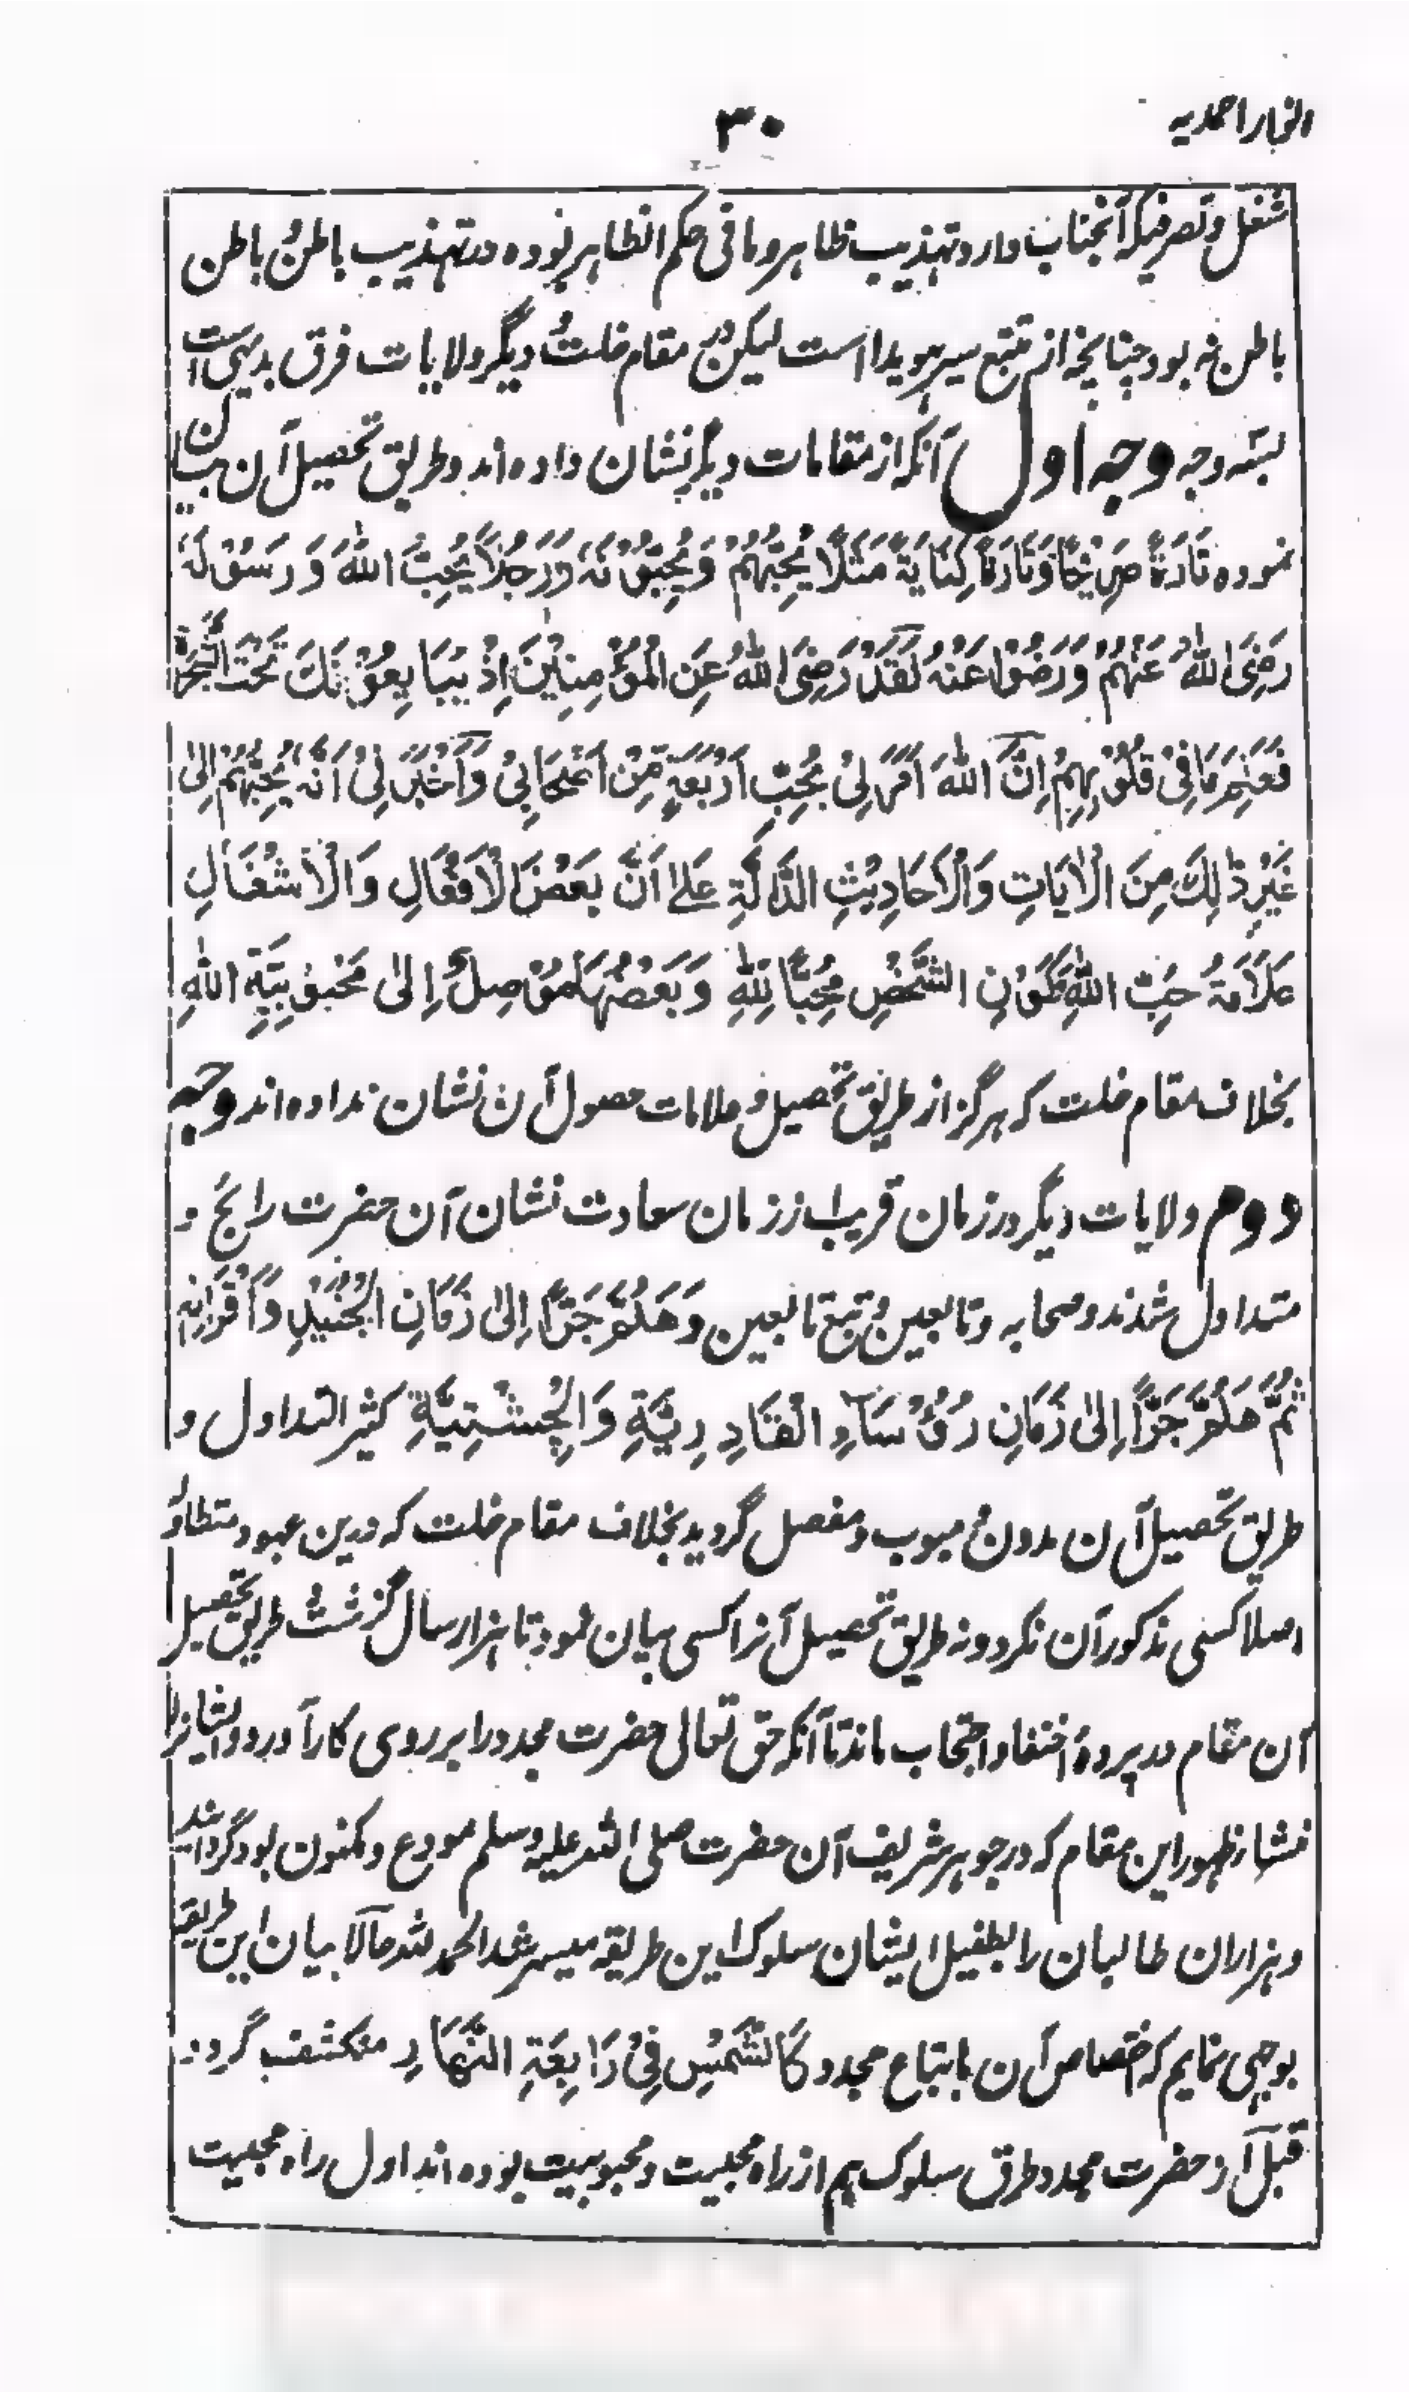 انوار احمدیہ
۳۰
شغل و تصرفیکہ آنجناب دارد تہذیب ظاہر و مافی حکم الظاہر بودہ در تہذیب باطن و باطن
باطن نہ بود چنانچہ از تتبع سیر ہویدا است لیکن در مقام خلت و دیگر ولایات فرق بدیہی است
بسہ وجہ وجہ اول آنکہ از مقامات دیگر نشان دادہ اند و طریق تحصیل آن بیان
نمودہ تَارَةً صَرِيْحًا وَتَارَةً كِنَايَةً مَثَلًا يُحِبُّهُمْ وَيُحِبُّوْنَهٗ وَرَجُلًا يُحِبُّ اللهَ وَرَسُوْلَهٗ
رَضِيَ اللهُ عَنْهُمْ وَرَضُوْا عَنْهُ لَقَدْ رَضِيَ اللهُ عَنِ الْمُؤْمِنِيْنَ اِذْ يُبَايِعُوْنَكَ تَحْتَ الشَّجَرَةِ
فَعَلِمَ مَا فِيْ قُلُوْبِهِمْ اِنَّ اللهَ اَمَرَ لِيْ بِحُبِّ اَرْبَعَةٍ مِّنْ اَصْحَابِيْ وَاَخْبَرَ لِيْ اَنَّهٗ يُحِبُّهُمْ اِلىٰ
غَيْرِ ذٰلِكَ مِنَ الْاٰيَاتِ وَالْاَحَادِيْثِ الدَّالَّةِ عَلىٰ اَنَّ بَعْضَ الْاَفْعَالِ وَالْاَشْغَالِ
عَلَامَةُ حُبِّ اللهِ كَكَوْنِ الشَّخْصِ مُحِبًّا لِلّٰهِ وَبَعْضُهَا مُوْصِلٌ اِلىٰ مَحْبُوْبِيَّةِ اللهِ
بخلاف مقام خلت کہ ہرگز از طریق تحصیل و علامات حصول آن نشان ندادہ اند وجہ
دوم ولایات دیگر در زمان قریب از زمان سعادت نشان آن حضرت رائج و
متداول شدند و صحابہ و تابعین و تبع تابعین وَهَلُمَّ جَرًّا اِلىٰ زَمَانِ الْجُنَيْدِ وَاَقْرَانِهٖ
ثُمَّ هَلُمَّ جَرًّا اِلىٰ زَمَانِ رُؤَسَاءِ الْقَادِرِيَّةِ وَالْچِشْتِيَّةِ کثیر التداول و
طریق تحصیل آن مدون و مبوب و مفصل گردید بخلاف مقام خلت کہ درین عہود متطاولہ
اصلا کسی مذکور آن نکرد و نہ طریق تحصیل آنرا کسی بیان نمود تا ہزار سال گزشت و طریق تحصیل
آن مقام در پردہٴ اختفا و احتجاب ماند تا آنکہ حق تعالی حضرت مجدد را بر روی کار آورد و ایشانرا
منشا ظہور این مقام کہ در جوہر شریف آن حضرت صلی اللہ علیہ وسلم مودع و مکنون بود گردانید
و ہزاران طالبان را بطفیل ایشان سلوک این طریقہ میسر شد الحمد للہ حالا بیان این طریقہ
بوجہی نمایم کہ اختصاص آن باتباع مجدد كَالشَّمْسِ فِيْ رَابِعَةِ النَّهَارِ منکشف گردد
قبل از حضرت مجدد طرق سلوک ہم از راہ محبیت و محبوبیت بودہ اند اول راہ محبیت